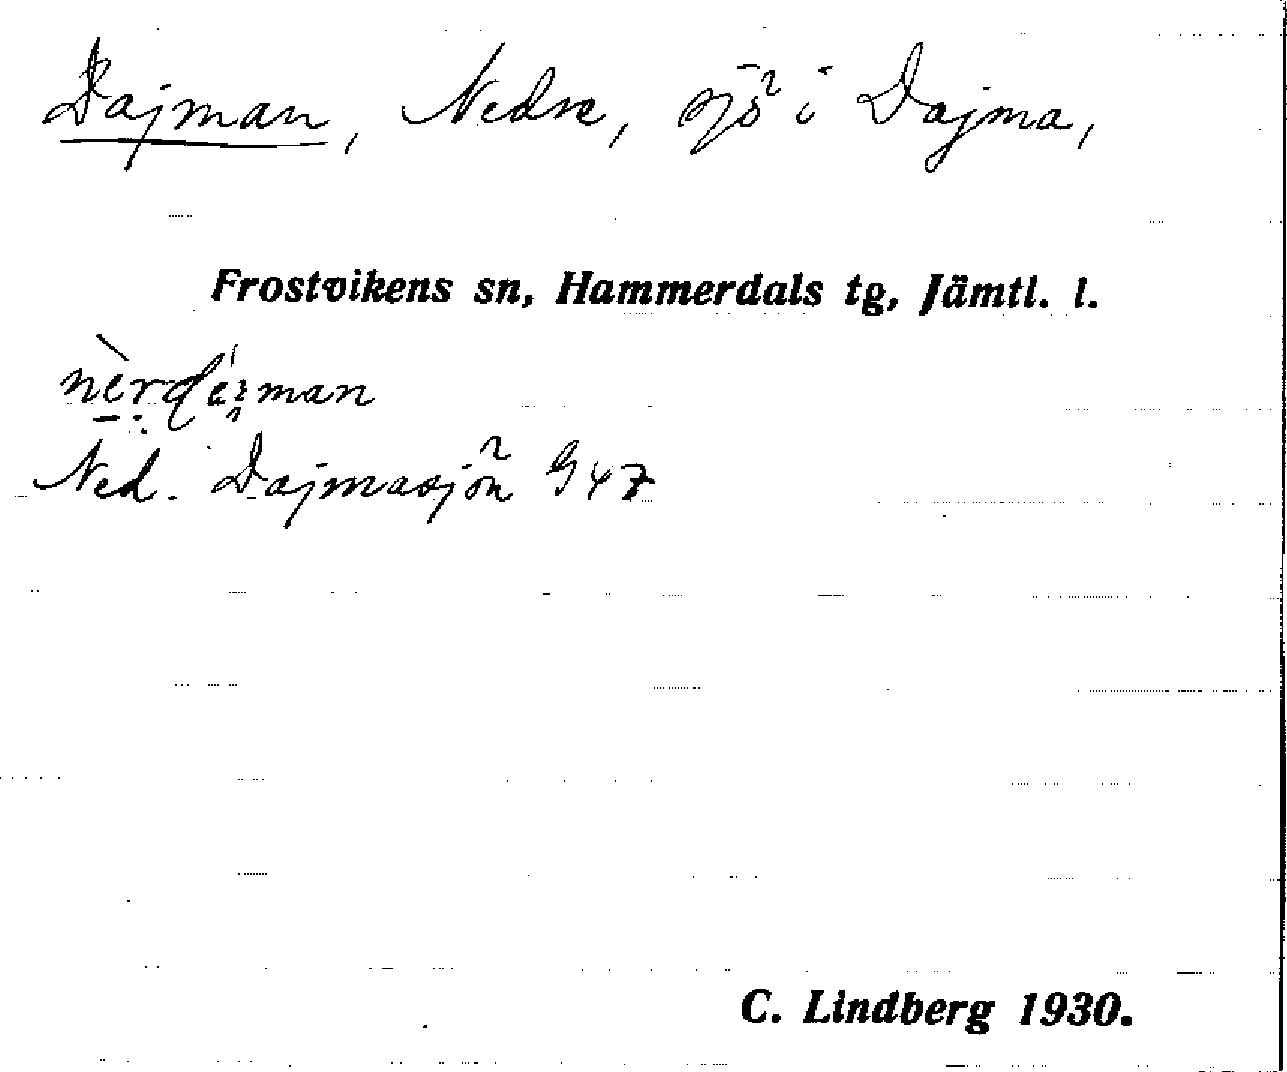 Dajman, Nedre, sjö i Dajma,
Frostvikens sn, Hammerdals tg, Jämtl. l.
Ned. Dajmasjön G47
C. Lindberg 1930.